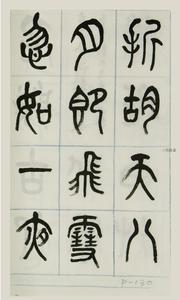 折胡天八
月即飛雪
忽如一夜
P-130